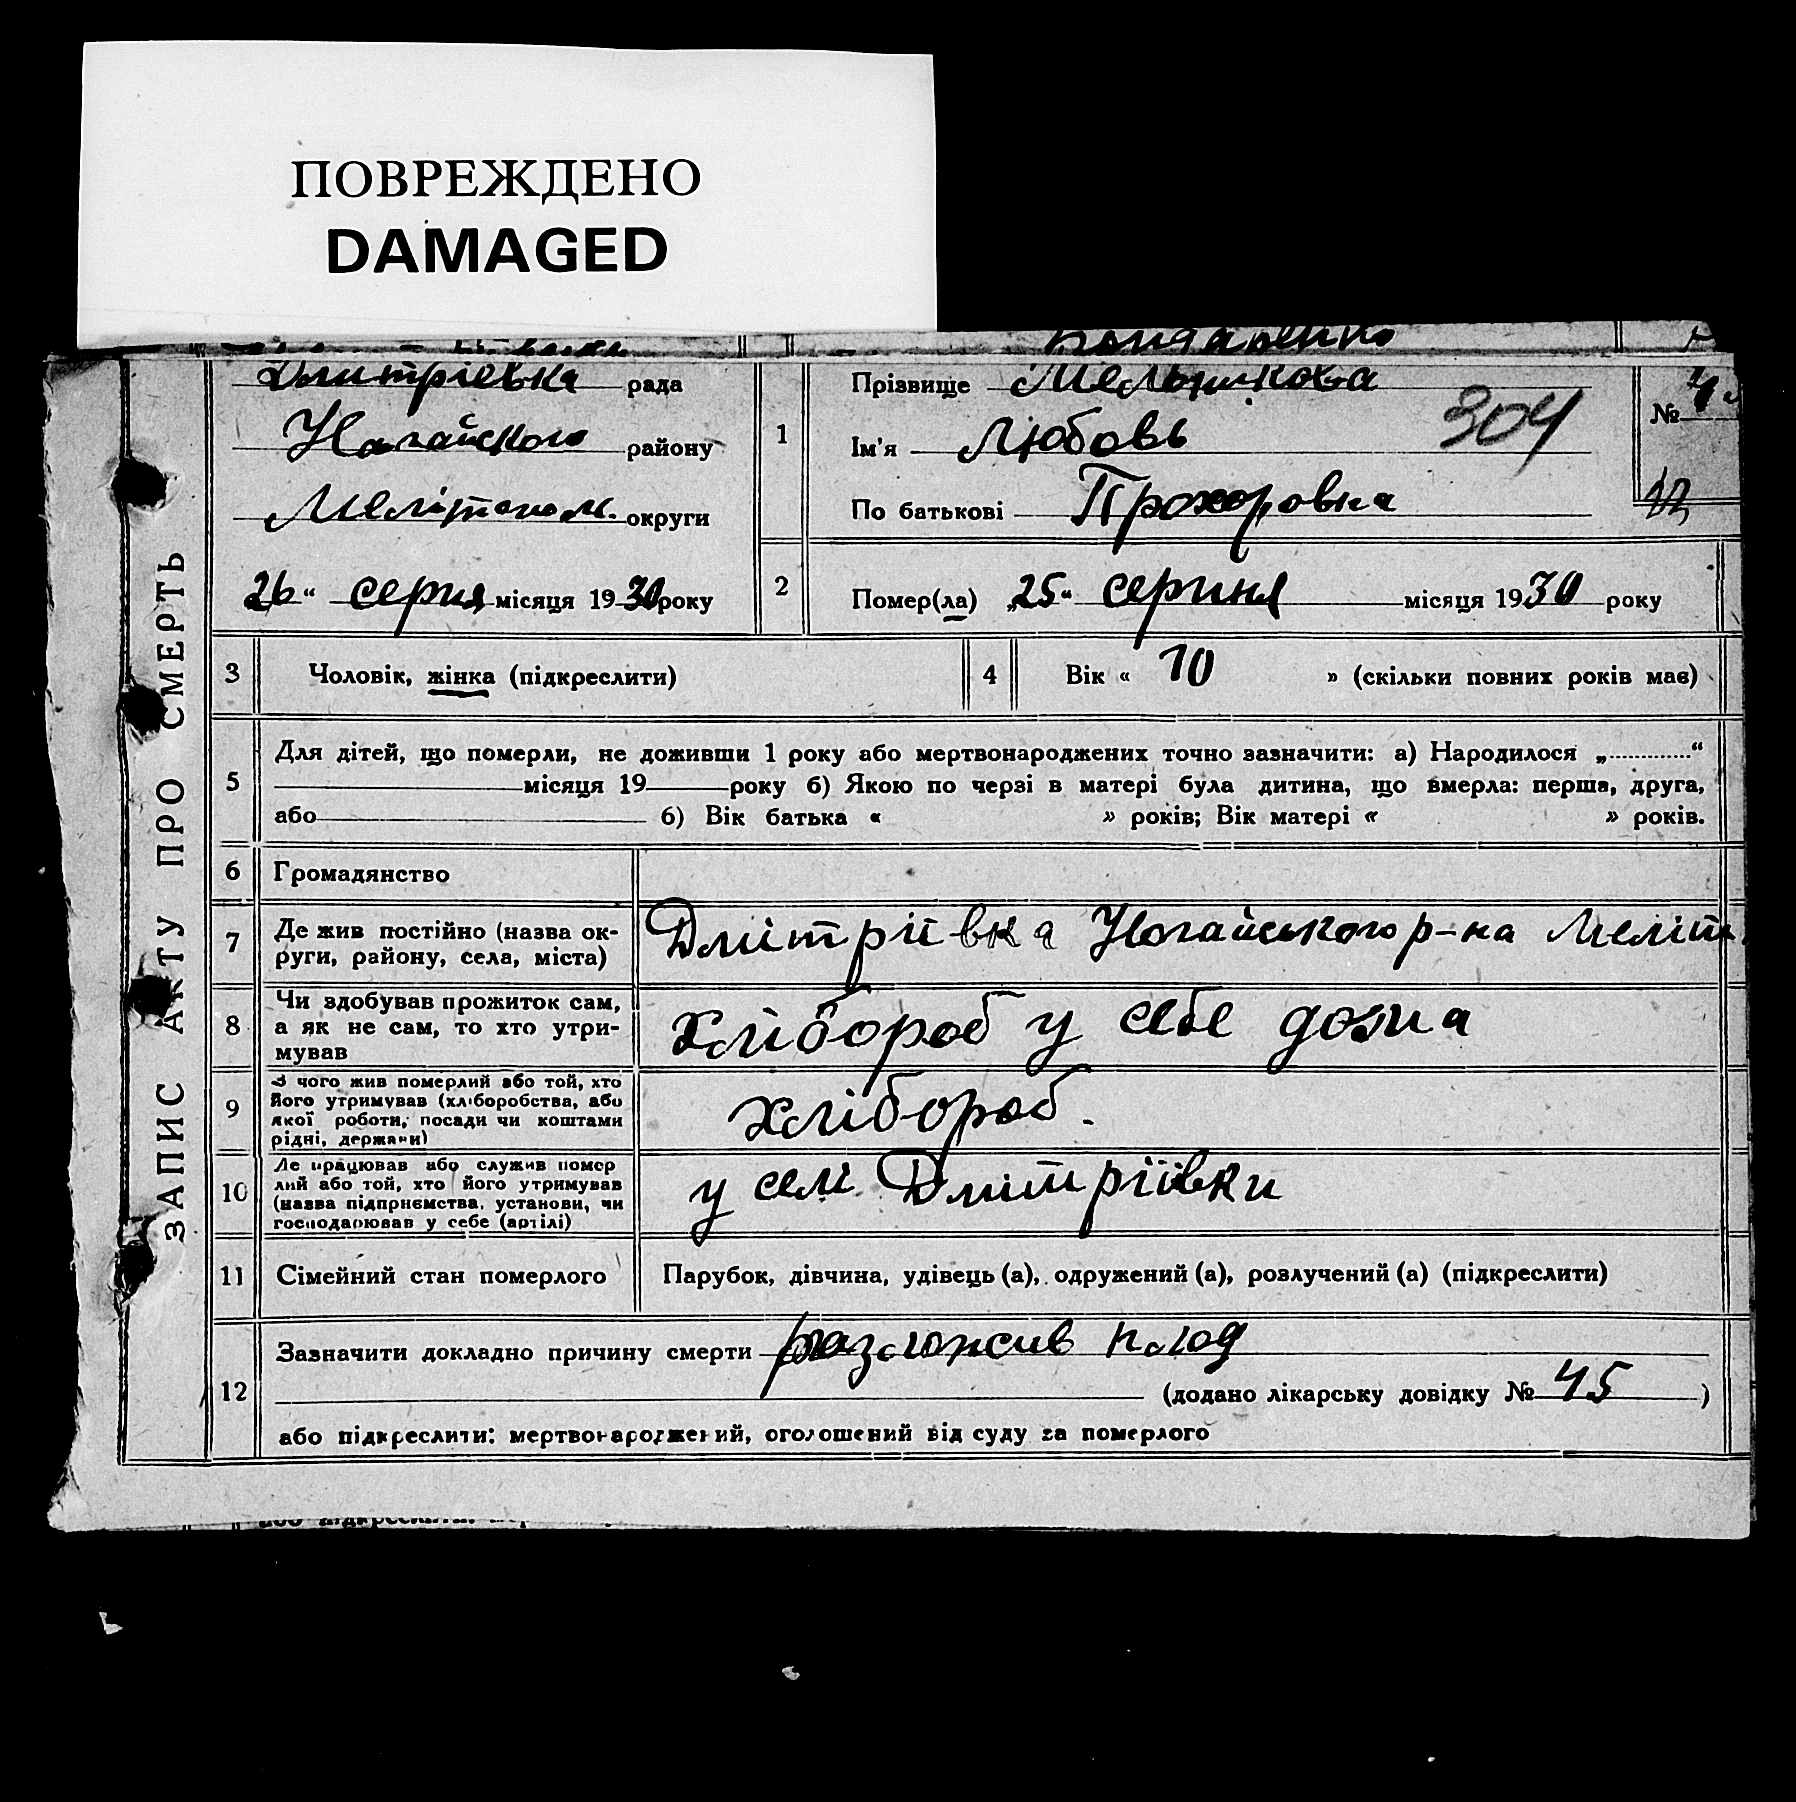 ПОВРЕЖДЕНО
DAMAGED
Бондаренко
ЗАПИС АКТУ ПРО СМЕРТЬ
Дмитрієвка рада
Нагайского району
Меліпопол. округи
26 " серпня місяця 1930 року
1
Прізвище Мельникова
Ім'я Любовь
По батькові Прохоровна
304
№
2
Помер(ла) „25" серпня місяця 1930 року
3 Чоловік, жінка (підкреслити)
4 Вік « 10 » (скільки повних років має)
5
Для дітей, що померли, не доживши 1 року або мертвонароджених точно зазначити: а) Народилося „ “
місяця 19 року б) Якою по черзі в матері була дитина, що вмерла: перша, друга,
або б) Вік батька « » років; Вік матері « » років.
6 Громадянство
7
Де жив постійно (назва ок-
руги, району, села, міста)
Дмітріївка Ногайського р-на Меліт
8
Чи здобував прожиток сам,
а як не сам, то хто утри-
мував
хлібороб у себе дома
9
З чого жив померлий або той, хто
його утримував (хліборобства, або
якої роботи, посади чи коштами
рідні, держави)
хлібороб.
10
Де працював або служив помер
лий або той, хто його утримував
(назва підприємства, установи, чи
господарював у себе (артілі)
у селі Дмитріївки
11 Сімейний стан померлого
Парубок, дівчина, удівець (а), одружений (а), розлучений (а) (підкреслити)
12
Зазначити докладно причину смерти
(додано лікарську довідку № 45 )
або підкреслити: мертвонароджений, оголошений від суду за померлого